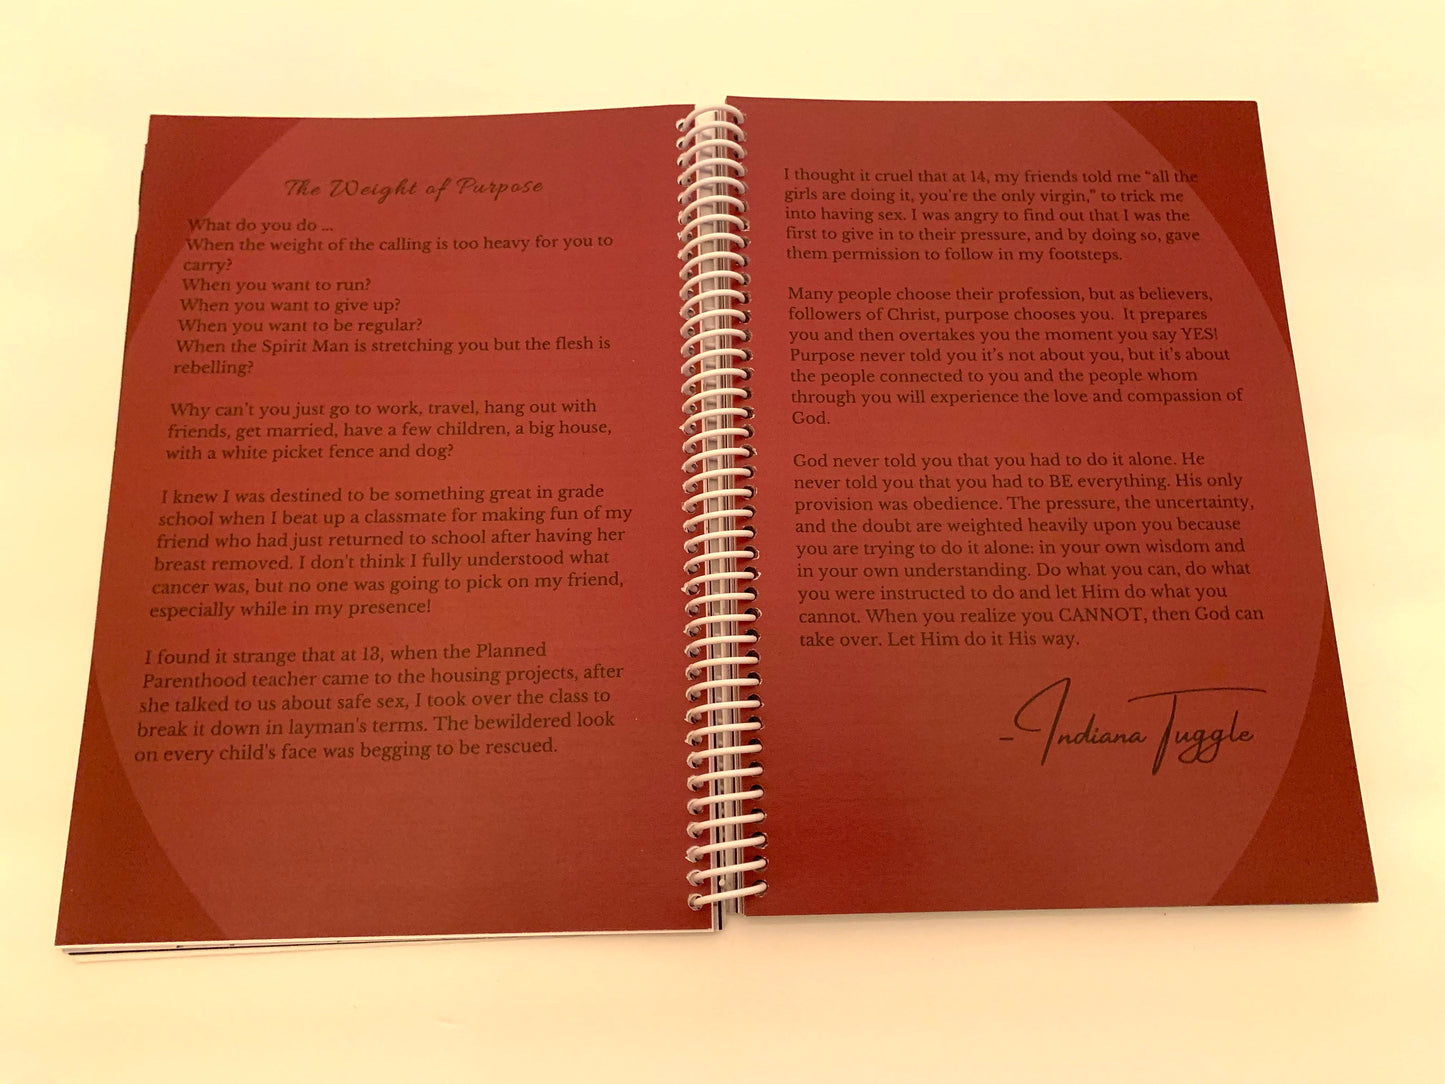 The Weight of Purpose
What do you do ...
When the weight of the calling is too heavy for you to
carry?
When you want to run?
When you want to give up?
When you want to be regular?
When the Spirit Man is stretching you but the flesh is
rebelling?
Why can't you just go to work, travel, hang out with
friends, get married, have a few children, a big house,
with a white picket fence and dog?
I knew I was destined to be something great in grade
school when I beat up a classmate for making fun of my
friend who had just returned to school after having her
breast removed. I don't think I fully understood what
cancer was, but no one was going to pick on my friend,
especially while in my presence!
I found it strange that at 13, when the Planned
Parenthood teacher came to the housing projects, after
she talked to us about safe sex, I took over the class to
break it down in layman's terms. The bewildered look
on every child's face was begging to be rescued.
I thought it cruel that at 14, my friends told me "all the
girls are doing it, you're the only virgin," to trick me
into having sex. I was angry to find out that I was the
first to give in to their pressure, and by doing so, gave
them permission to follow in my footsteps.
Many people choose their profession, but as believers,
followers of Christ, purpose chooses you.  It prepares
you and then overtakes you the moment you say YES!
Purpose never told you it's not about you, but it's about
the people connected to you and the people whom
through you will experience the love and compassion of
God.
God never told you that you had to do it alone. He
never told you that you had to BE everything. His only
provision was obedience. The pressure, the uncertainty,
and the doubt are weighted heavily upon you because
you are trying to do it alone: in your own wisdom and
in your own understanding. Do what you can, do what
you were instructed to do and let Him do what you
cannot. When you realize you CANNOT, then God can
take over. Let Him do it His way.
-Indiana Tuggle